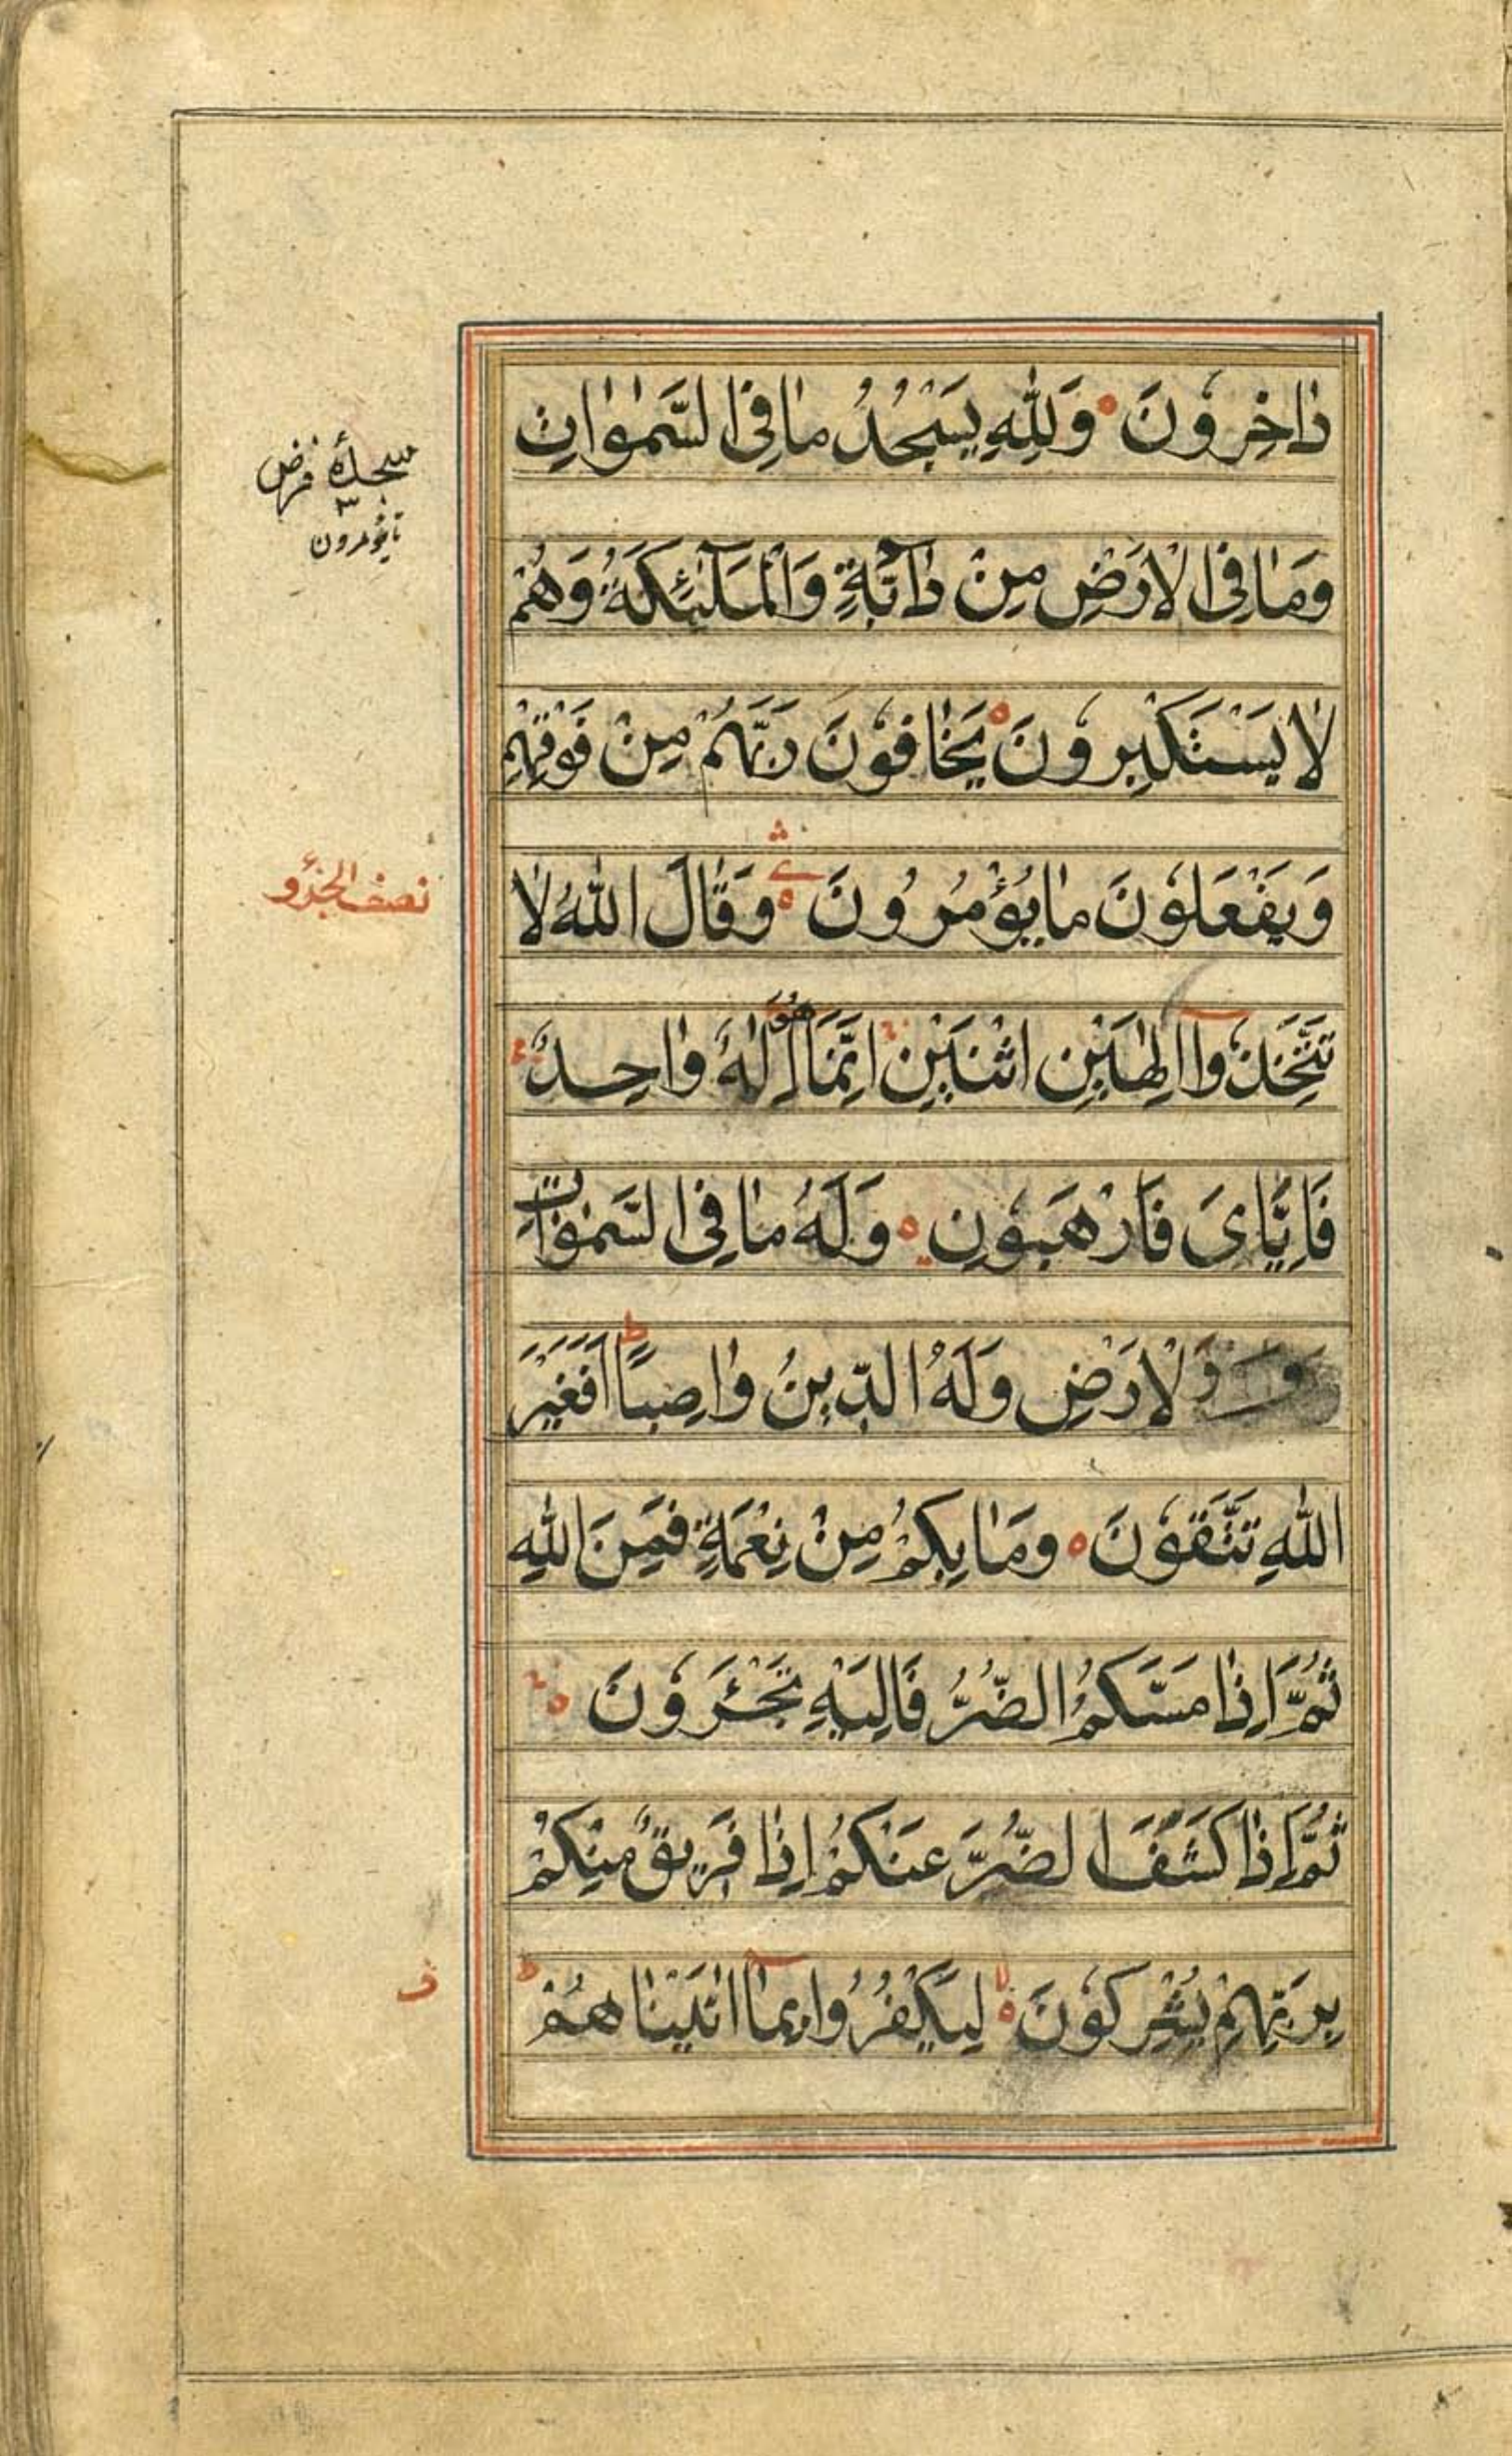 دٰاخِرُونَ ۝ وَلِلّٰهِ يَسْجُدُ مٰا فِى السَّمٰوٰاتِ
وَمٰا فِى الْاَرْضِ مِنْ دٰآبَّةٍ وَالْمَلٰٓئِكَةُ وَهُمْ
لٰا يَسْتَكْبِرُونَ ۝ يَخٰافُونَ رَبَّهُمْ مِنْ فَوْقِهِمْ
وَيَفْعَلُونَ مٰا يُؤْمَرُونَ ۝ وَقٰالَ اللّٰهُ لٰا
تَتَّخِذُوٓا اِلٰهَيْنِ اثْنَيْنِ اِنَّمٰا هُوَ اِلٰهٌ وٰاحِدٌ
فَاِيّٰاىَ فَارْهَبُونِ ۝ وَلَهُ مٰا فِى السَّمٰوٰاتِ
وَ الْاَرْضِ وَلَهُ الدّينُ وٰاصِبًا ط اَفَغَيْرَ
اللّٰهِ تَتَّقُونَ ۝ وَمٰا بِكُمْ مِنْ نِعْمَةٍ فَمِنَ اللّٰهِ
ثُمَّ اِذٰا مَسَّكُمُ الضُّرُّ فَاِلَيْهِ تَجْـَٔرُونَ ۝
ثُمَّ اِذٰا كَشَفَ الضُّرَّ عَنْكُمْ اِذٰا فَرِيقٌ مِنْكُمْ
بِرَبِّهِمْ يُشْرِكُونَ ۝ لا لِيَكْفُرُوا بِمٰٓا اٰتَيْنٰاهُمْ ط
سجدهٔ فرض
تا يؤمرون
نصف الجزؤ